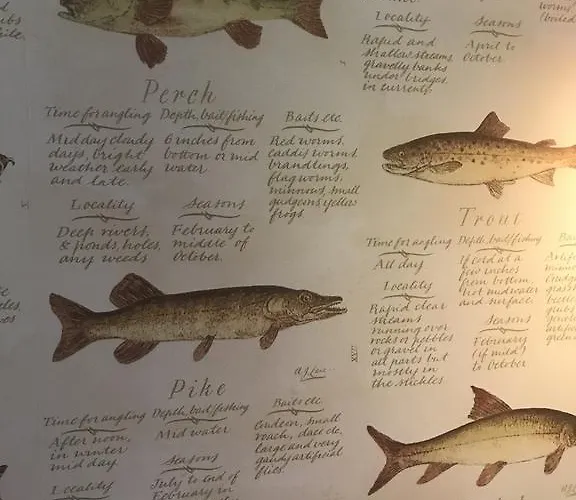 Locality
Rapid and
shallow streams
gravelly banks
under bridges
in currents.
Seasons
April to
October.
worms
(boiled
Perch
Time for angling
Midday cloudy
days, bright
weather early
and late.
Depth, bait fishing
6 inches from
bottom or mid
water.
Baits etc.
Red worms,
caddis worms
brandlings,
flag worms,
minnows, small
gudgeons yellow
frogs.
Locality
Deep rivers,
& ponds, holes,
any weeds
Seasons
February to
middle of
October.
Trout
Time for angling
All day
Depth, bait fishing
If cold at a
few inches
from bottom,
hot midwater
and surface.
Locality
Rapid clear
streams
running over
rocks or pebbles
or gravel in
all parts but
mostly in
the stickles.
Seasons
February
(if mild)
to October
XVII
Pike
Time for angling
After noon,
in winter
mid day.
Depth, bait fishing
Mid water
Baits etc.
Gudgeon, small
roach, dace etc,
large and very
gaudy artificial
flies.
Locality
Seasons
July to end of
February in